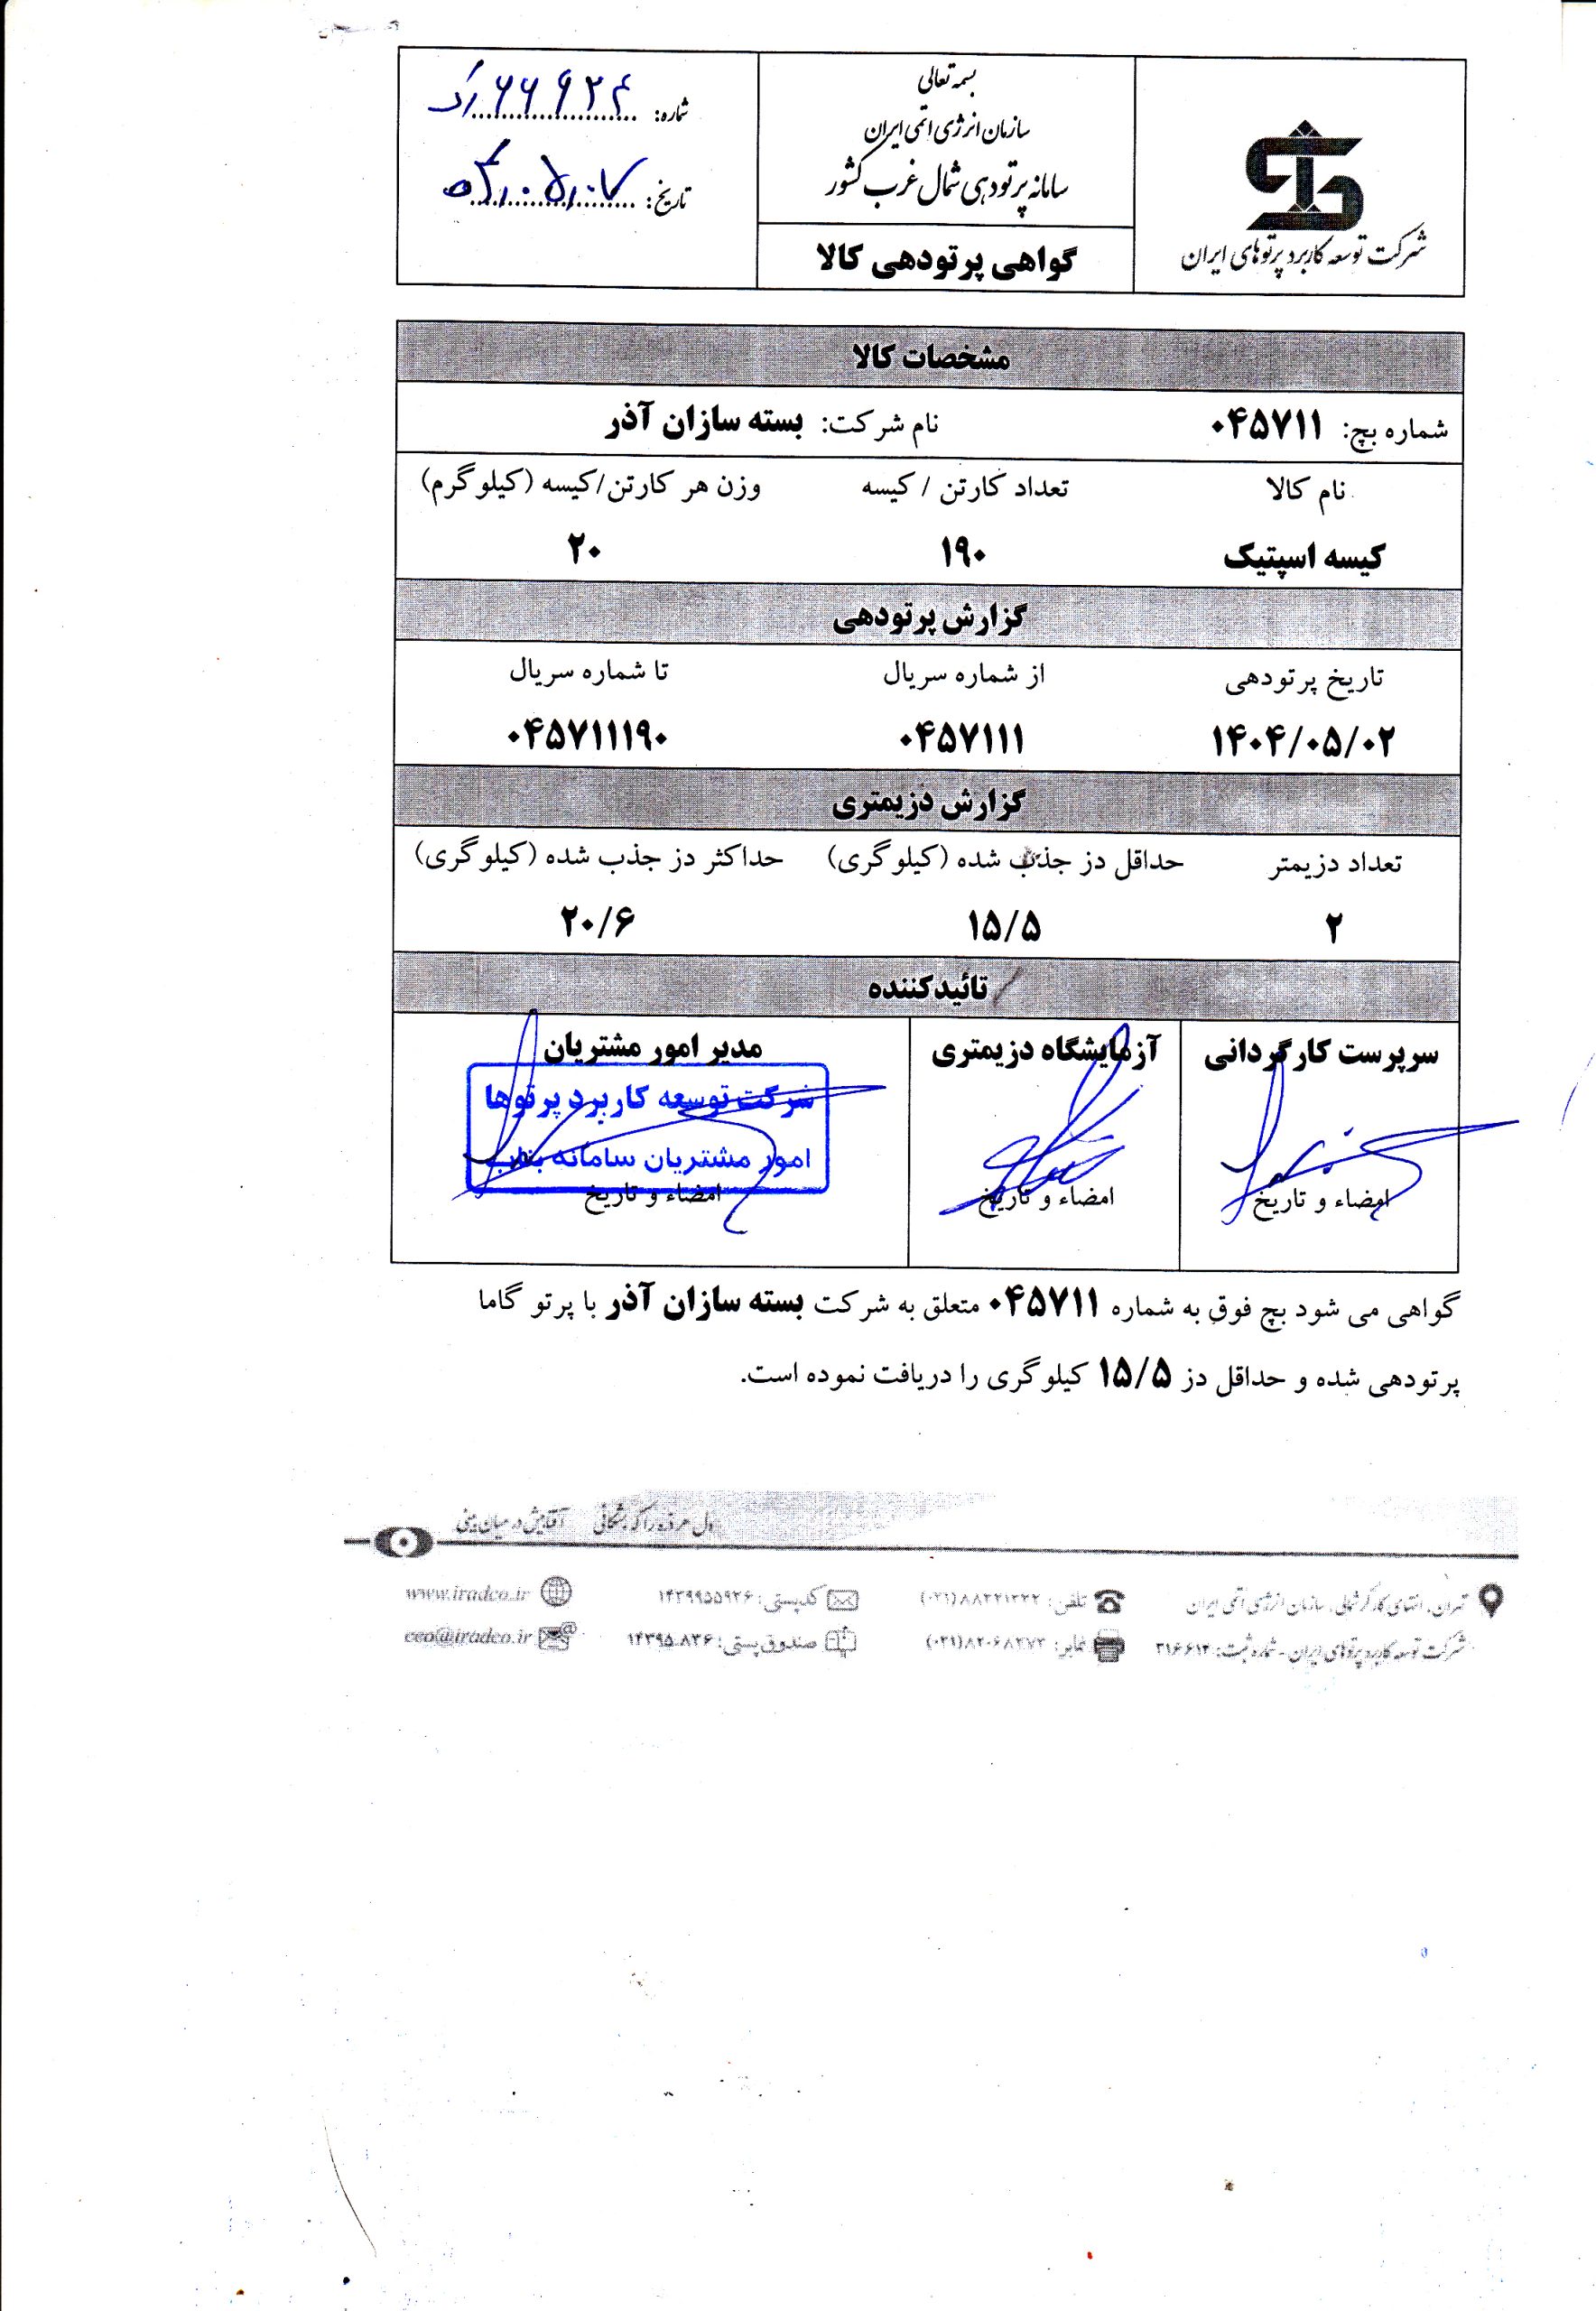 بسمه تعالی
سازمان انرژی اتمی ایران
سامانه پرتودهی شمال غرب کشور
گواهی پرتودهی کالا
شرکت توسعه کاربرد پرتوهای ایران
شماره:
تاریخ:
مشخصات کالا
شماره بچ: ۰۴۵۷۱۱ نام شرکت: بسته سازان آذر
نام کالا تعداد کارتن / کیسه وزن هر کارتن/کیسه (کیلوگرم)
کیسه اسپتیک ۱۹۰ ۲۰
گزارش پرتودهی
تاریخ پرتودهی از شماره سریال تا شماره سریال
۱۴۰۴/۰۵/۰۲ ۰۴۵۷۱۱۱ ۰۴۵۷۱۱۱۹۰
گزارش دزیمتری
تعداد دزیمتر حداقل دز جذب شده (کیلوگری) حداکثر دز جذب شده (کیلوگری)
۲ ۱۵/۵ ۲۰/۶
تائیدکننده
سرپرست کارگردانی آزمایشگاه دزیمتری مدیر امور مشتریان
شرکت توسعه کاربرد پرتوها
امور مشتریان سامانه بناب
امضاء و تاریخ امضاء و تاریخ امضاء و تاریخ
گواهی می شود بچ فوق به شماره ۰۴۵۷۱۱ متعلق به شرکت بسته سازان آذر با پرتو گاما
پرتودهی شده و حداقل دز ۱۵/۵ کیلوگری را دریافت نموده است.
دل هر ذره را که بشکافی آفتابیش در میان بینی
تهران، انتهای کارگر شمالی، سازمان انرژی اتمی ایران تلفن: ۸۸۲۲۱۲۲۲(۰۲۱) کدپستی: ۱۴۳۹۹۵۵۹۲۶ www.iradco.ir
شرکت توسعه کاربرد پرتوهای ایران - شماره ثبت: ۲۱۶۶۱۲ نمابر: ۸۲۰۶۸۲۷۲(۰۲۱) صندوق پستی: ۱۴۳۹۵-۸۳۶ ceo@iradco.ir